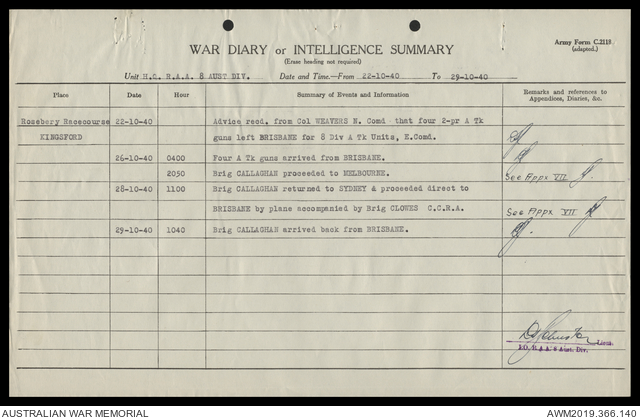 Army Form C.2118.
(adapted.)
WAR DIARY or INTELLIGENCE SUMMARY
(Erase heading not required)
Unit H.Q. R.A.A. 8 AUST DIV. Date and Time—From 22-10-40 To 29-10-40
Place Date Hour Summary of Events and Information Remarks and references to Appendices, Diaries, &c.
Rosebery Racecourse 22-10-40 Advice recd. from Col WEAVERS N. Comd that four 2-pr A Tk
KINGSFORD guns left BRISBANE for 8 Div A Tk Units, E.Comd.
26-10-40 0400 Four A Tk guns arrived from BRISBANE.
2050 Brig CALLAGHAN proceeded to MELBOURNE. See Appx VII
28-10-40 1100 Brig CALLAGHAN returned to SYDNEY & proceeded direct to
BRISBANE by plane accompanied by Brig CLOWES C.C.R.A. See Appx VII
29-10-40 1040 Brig CALLAGHAN arrived back from BRISBANE.
Lieut.
R.A.A. 8 Aust. Div.
AUSTRALIAN WAR MEMORIAL AWM2019.366.140